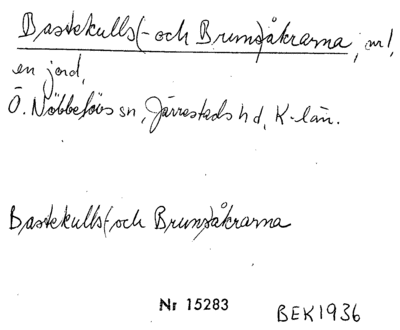 Bastekulls(-och Bruns)åkrarna, nr 1,
en jord,
Ö. Nöbbelövs sn, Järrestads hd, K-län.
Bastekulls(-och Bruns)åkrarna
Nr 15283
BEK1936